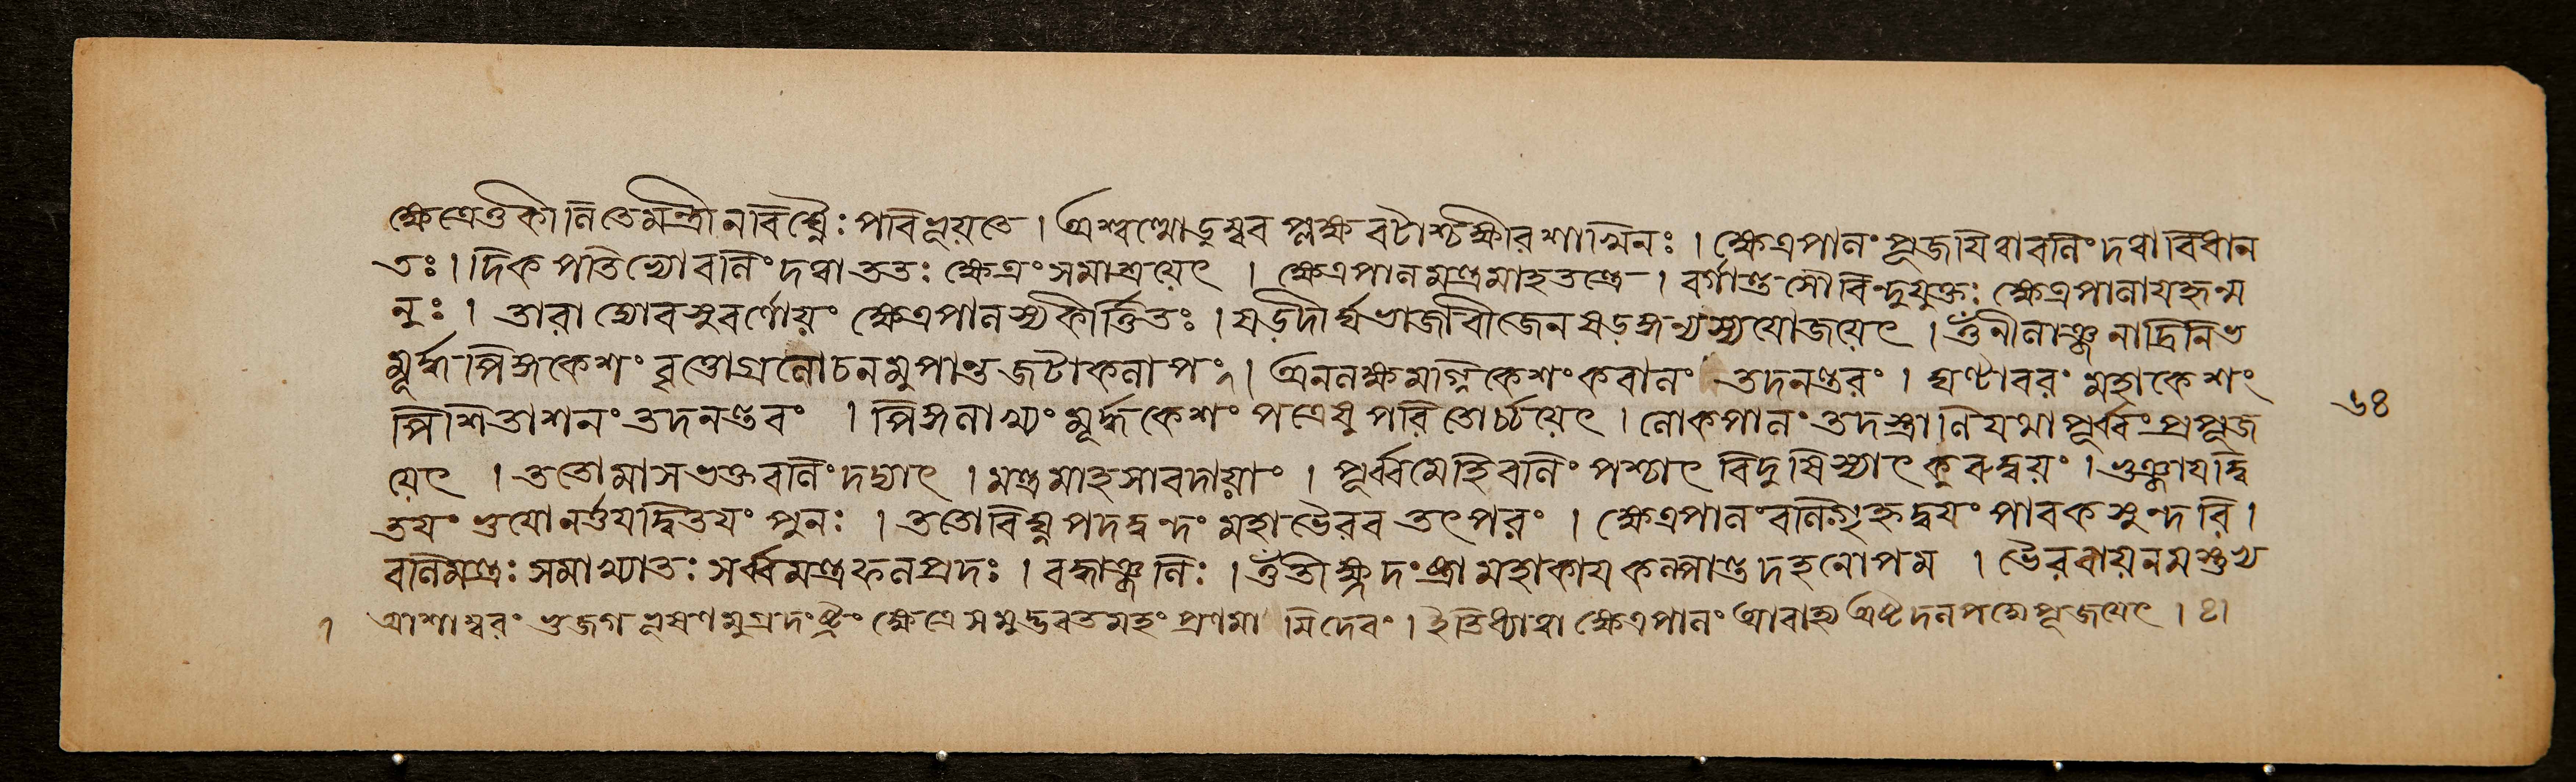 ক্ষেত্রেতুকীনিতেমন্ত্রীনবিঘ্নৈঃ পবিভূয়তে । অশ্বত্থোডুম্বব প্লক্ষ বটাশ্চক্ষীরশাখিনঃ । ক্ষেত্রপানং পূজযিত্বাবনিং দত্বাবিধান
তঃ । দিক পতিভ্যোবনিং দত্বাততঃ ক্ষেত্রং সমাশ্রয়েৎ । ক্ষেত্রপানমন্ত্রমাহতন্ত্রে । বর্গান্ত মৌবিন্দুযুক্তঃ ক্ষেত্রপানাযহৃন্ম
নুঃ । তারাদ্যোবসুবর্ণোয়ং ক্ষেত্রপানস্যকীর্ত্তিতঃ । ষড়দীর্ঘভাজাবীজেনষড়ঙ্গন্যস্যযোজয়েৎ । ওঁনীনাঞ্জনাদ্রিনিভ
মূর্দ্ধপিঙ্গকেশং বৃত্তোগ্রনোচনমুপাত্তজটাকনাপং । অননক্ষমগ্নিকেশংকবানং তদনন্তরং । ঘণ্টাবরং মহাকেশং
পিশিতাশনং তদনন্তবং । পিঙ্গনাখ্যং মূর্দ্ধকেশং পত্রেষুপরিতোর্চ্চয়েৎ । নোকপানং তদস্ত্রানিযথাপূর্ব্বংপ্রপূজ
য়েৎ । ততোমাসভক্তবনিং দদ্যাৎ । মন্ত্রমাহসাবদায়াং । পূর্ব্বমেহিবনিং পশ্চাৎ বিদুষিস্যাৎ কুরুদ্বয়ং । ভুঞ্জাযদ্বি
তযং ভুযোনর্ত্তযদ্বিতযং পুনঃ । ততোবিঘ্নপদদ্বন্দং মহাভৈরব তৎপরং । ক্ষেত্রপানং বনিংগৃহ্নদ্বযং পাবকসুন্দরি ।
বনিমন্ত্রঃ সমাখ্যাতঃ সর্ব্বমন্ত্রফনপ্রদঃ । বদ্ধাঞ্জনিঃ । ওঁতীক্ষ্ণদংষ্ট্রা মহাকায কল্পান্তদহনোপম । ভৈরবায়নমস্তুভ্য
১ আশাম্বরং ভুজগভূষণমুগ্রদংষ্ট্রং ক্ষেত্রেসমুদ্ভবতমহং প্রণমামিদেবং । ইতিধ্যাত্বা ক্ষেত্রপানং আবাহ্য অষ্টদনপদ্মেপূজয়েৎ । ৪।
৬৪